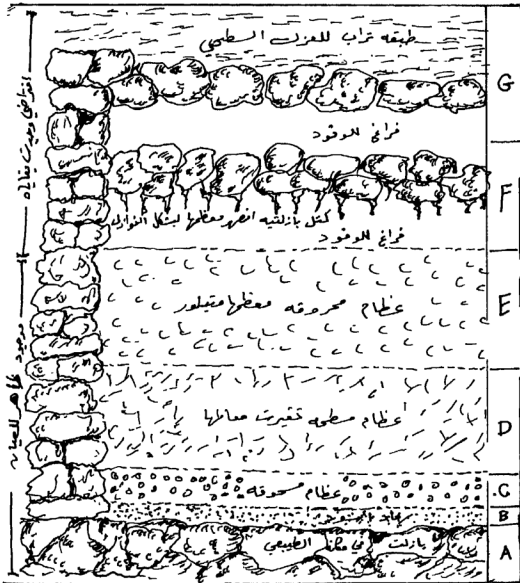 طبقه تراب للعزل السطحي
G
فراغ للوقود
F
كتل بازلتيه انصهر معظمها لبشكل النوازل
فراغ للوقود
E
عظام محروقه معظمها متبلور
D
عظام مسطحه تغيرت معالمها
C
عظام مسحوقه
B
A
بازلت في مكانه الطبيعي
موجود ظاهر للعين